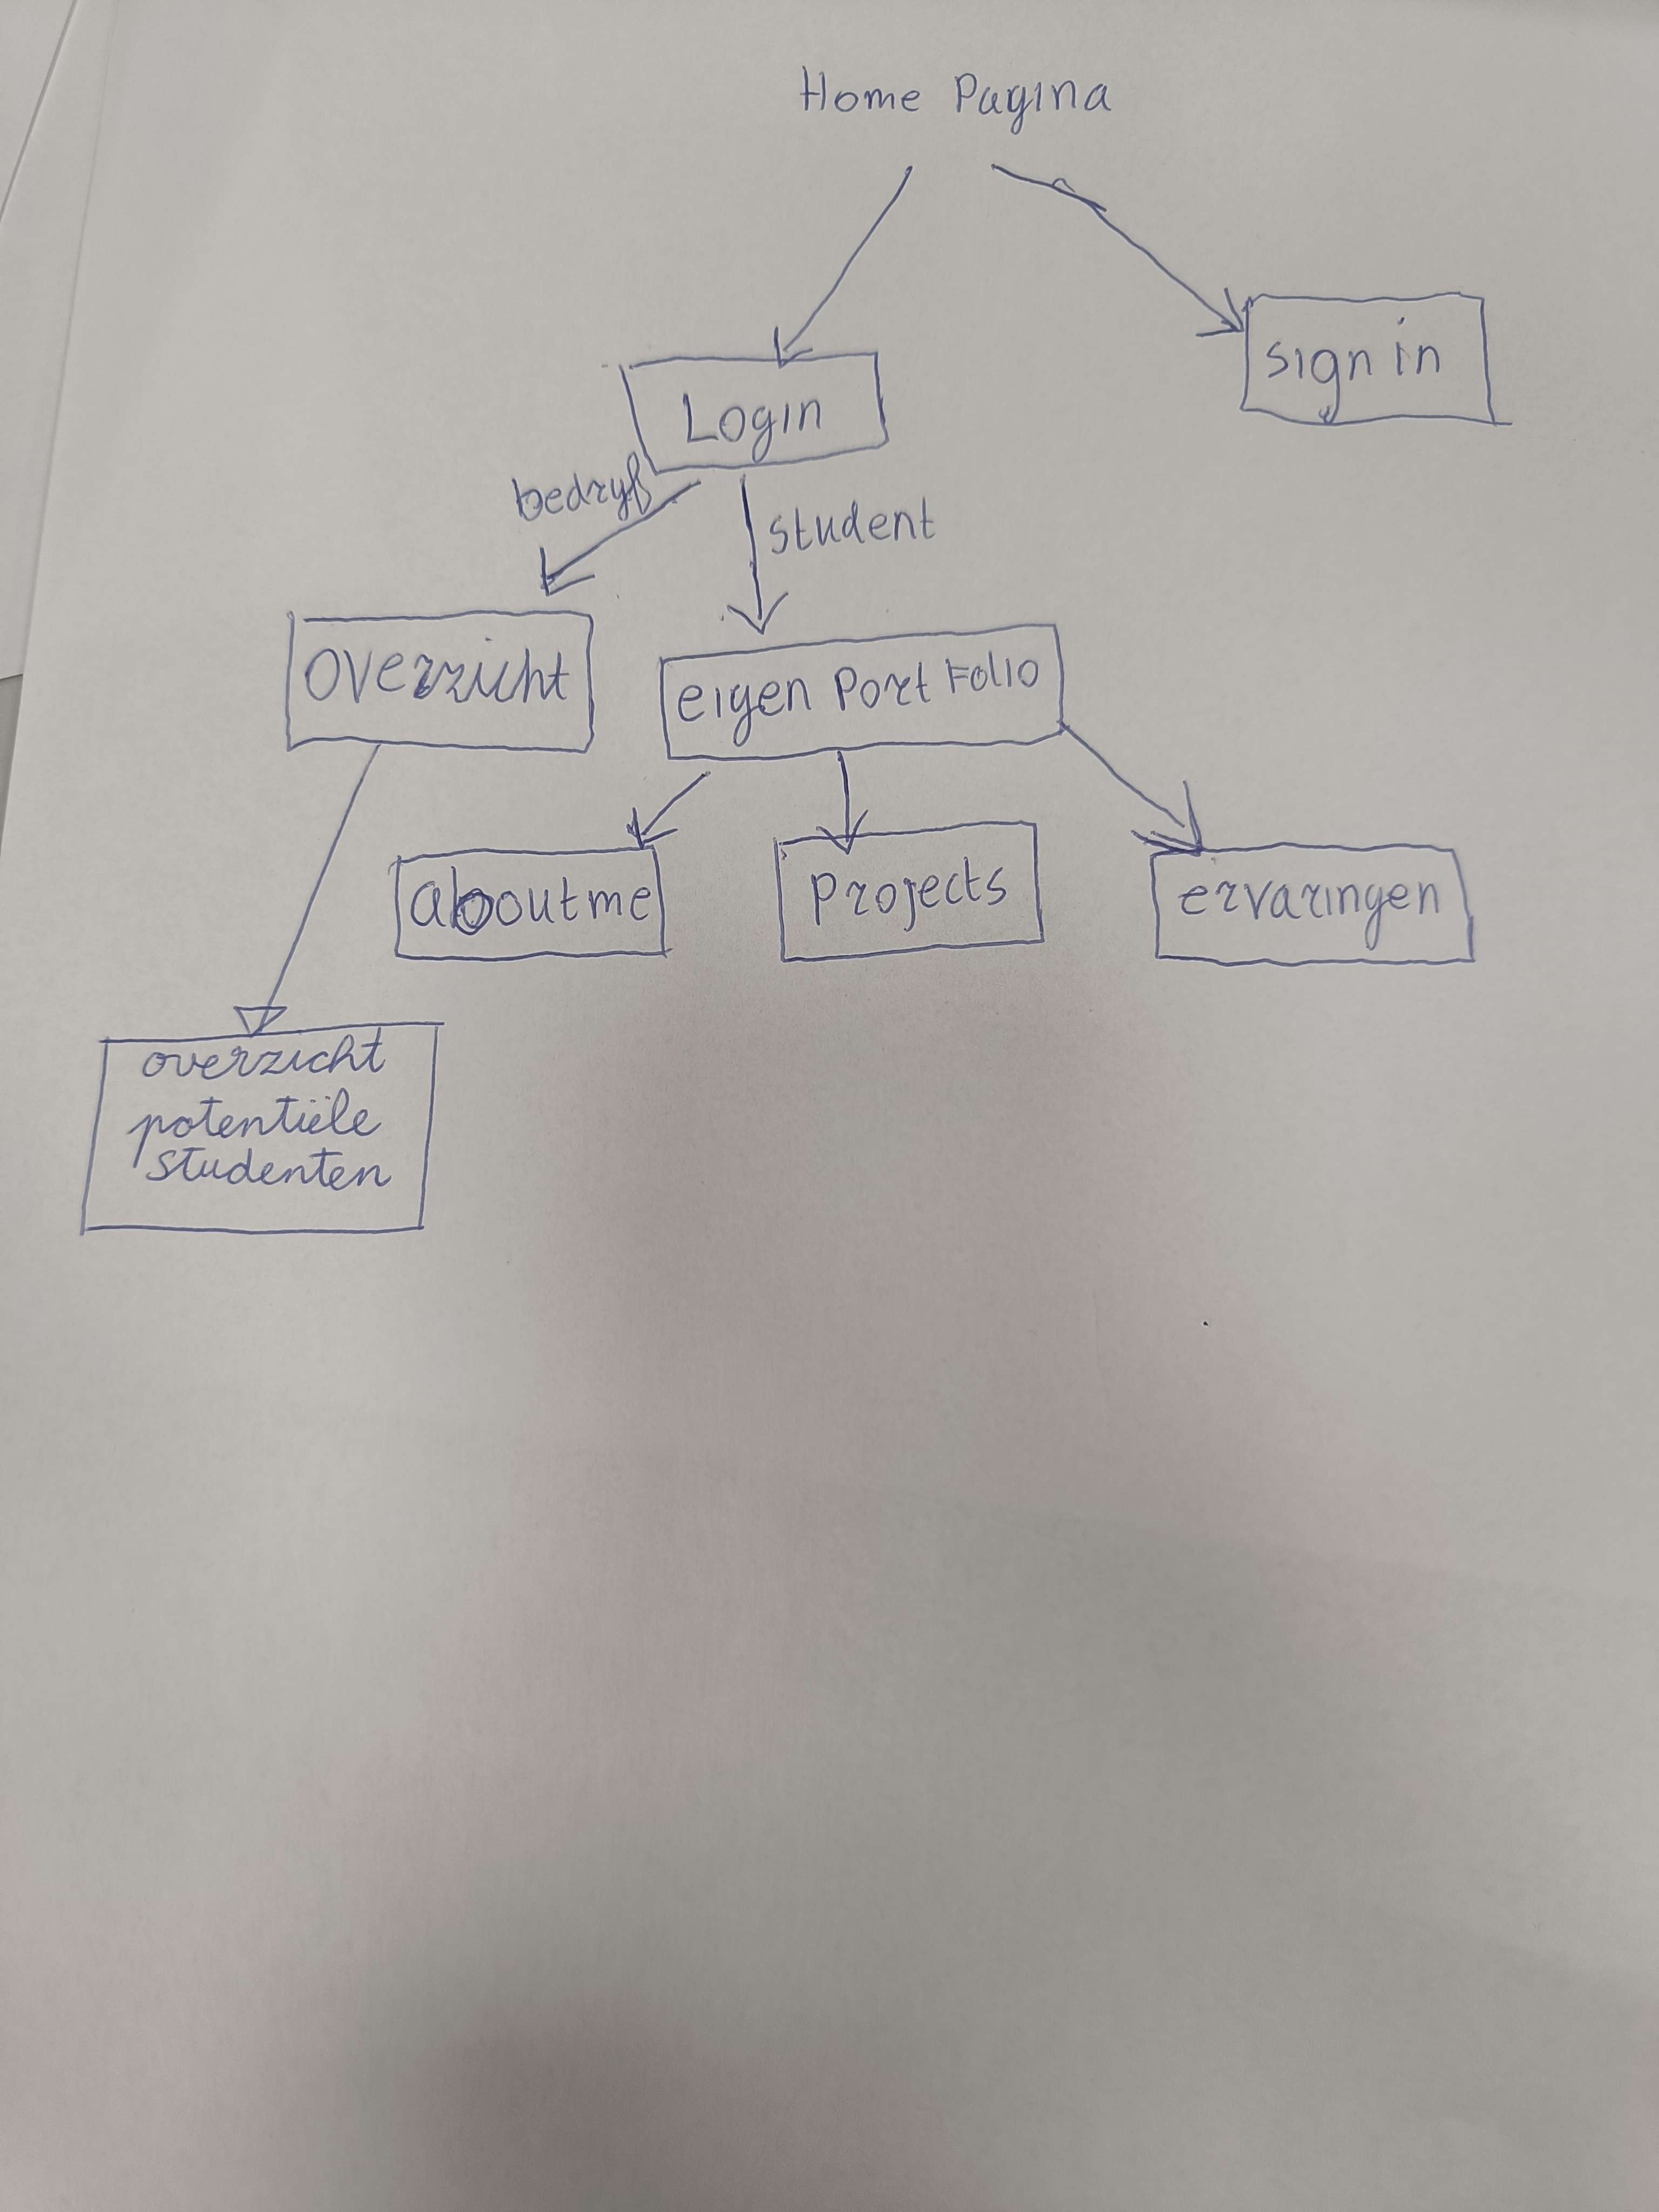 Home Pagina
sign in
Login
bedryf
student
overzicht
eigen Portfolio
aboutme
Projects
ervaringen
overzicht
potentiële
studenten